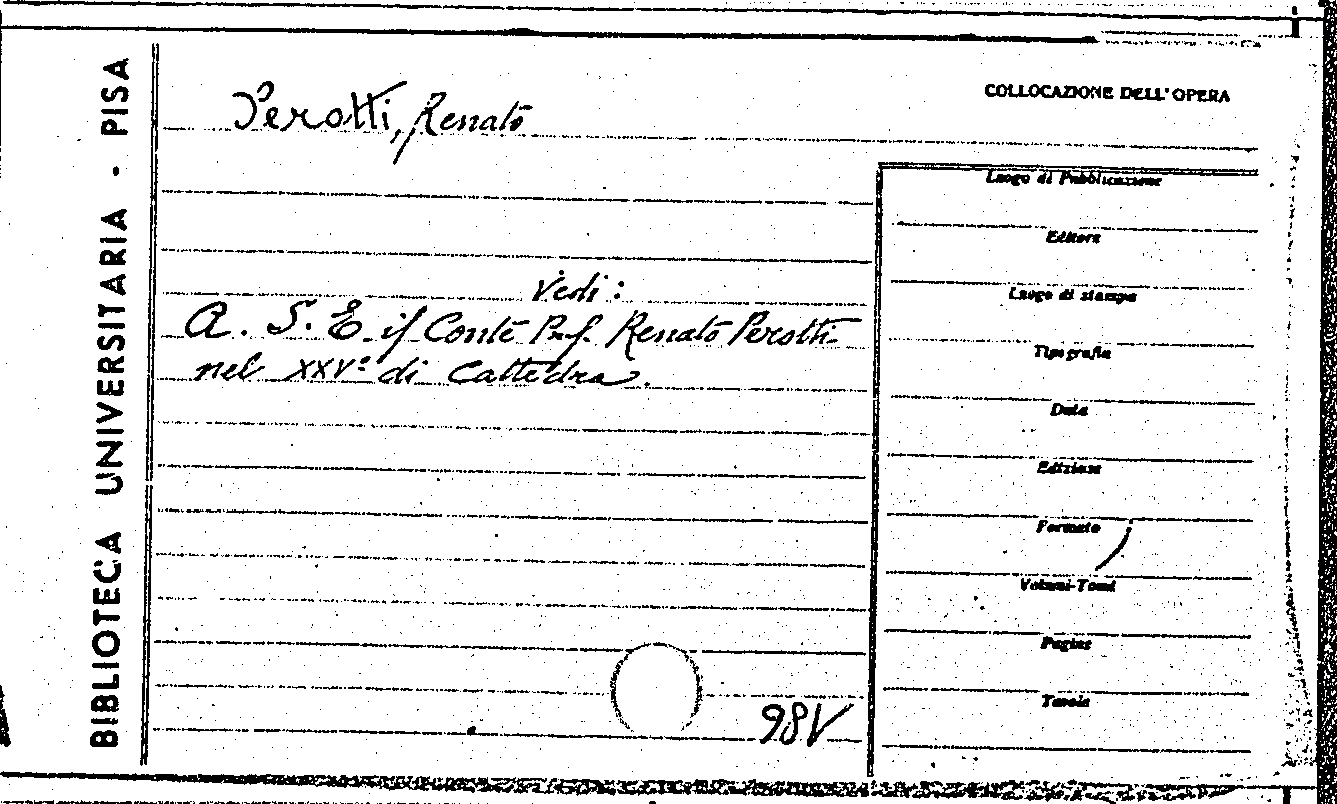 BIBLIOTECA UNIVERSITARIA - PISA
Perotti, Renato
COLLOCAZIONE DELL'OPERA
Vedi:
A. S. E. il Conte Prof. Renato Perotti
nel XXV° di Cattedra.
98V
Luogo di Pubblicazione
Editore
Luogo di stampa
Tipografia
Data
Edizione
Formato
Volumi-Tomi
Pagine
Tavole